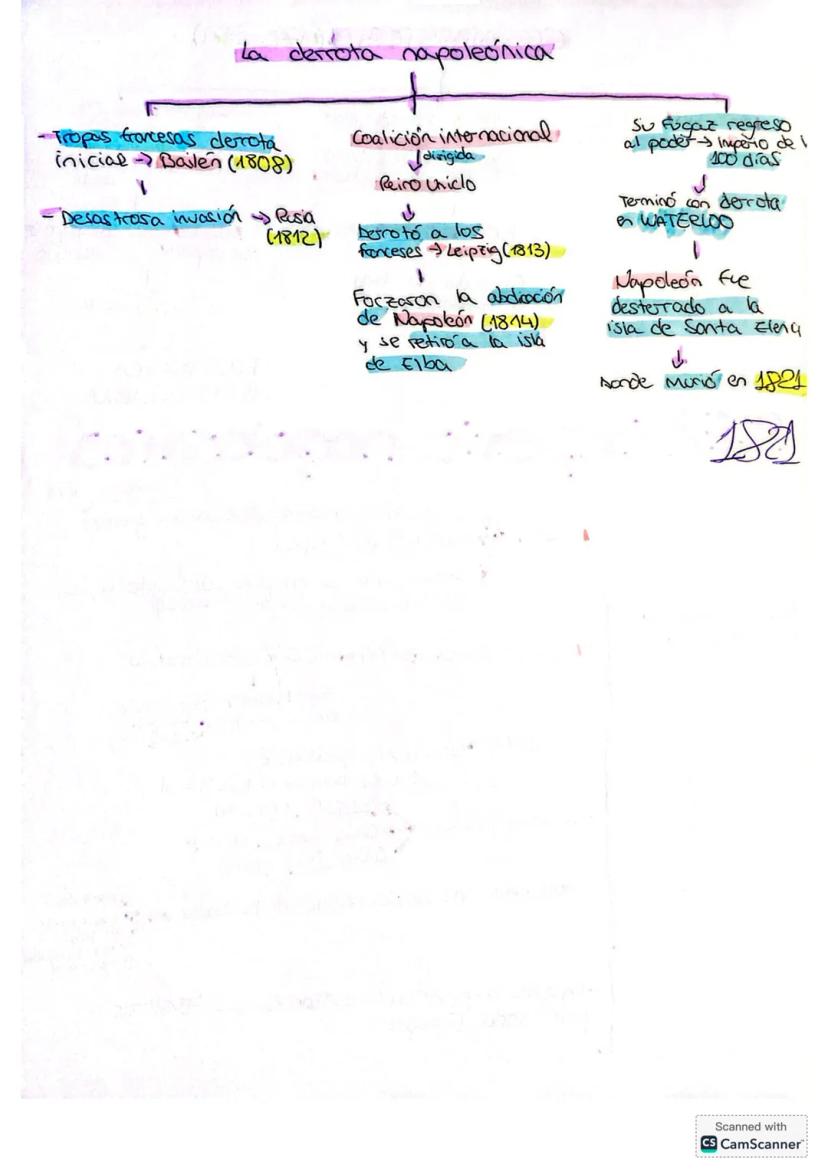 La derrota napoleónica
- Tropas francesas derrota
inicial → Bailén (1808)
- Desastrosa invasión → Rusia
(1812)
Coalición internacional
dirigida
Reino Unido
Derrotó a los
franceses → Leipzig (1813)
Forzaron la abdicación
de Napoleón (1814)
y se retiró a la isla
de Elba
Su fugaz regreso
al poder → imperio de l
100 días
Terminó con derrota
en WATERLOO
Napoleón fue
desterrado a la
isla de Santa Elena
Donde Murió en 1821
1821
Scanned with
CS CamScanner